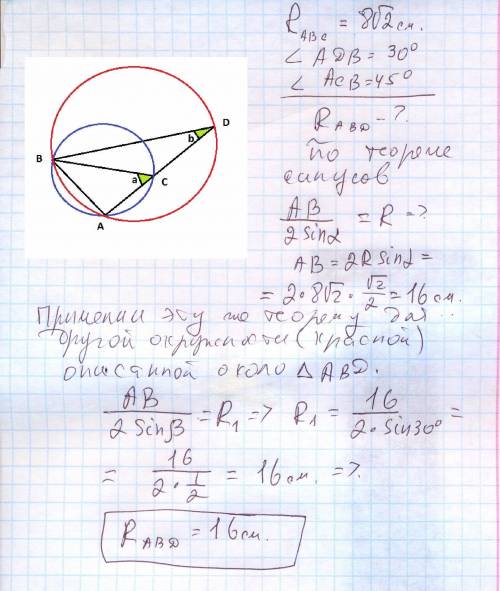 R ABC = 8√2 см.
∠ ADB = 30°
∠ ACB = 45°
R ABD - ?
По теореме
синусов
AB / 2 sinα = R => 
AB = 2R sinα =
= 2 · 8√2 · √2/2 = 16 см.
Применим эту же теорему для
другой окружности (красной)
описанной около △ ABD.
AB / 2 sinβ = R₁ => R₁ = 16 / 2 · sin30° =
= 16 / 2 · 1/2 = 16 см. =>
R ABD = 16 см.
B
D
b
a
C
A